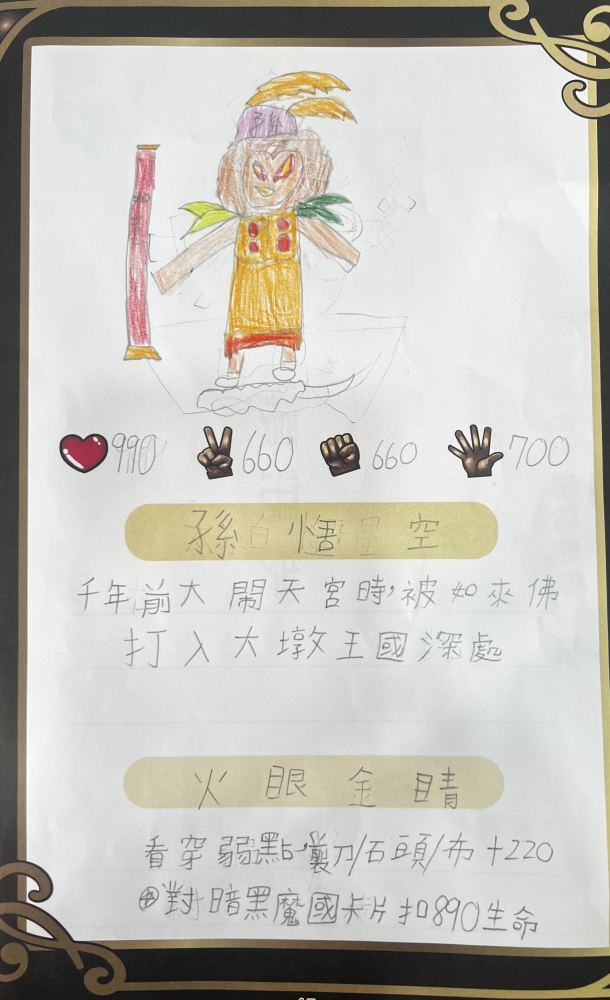 孫
如
990 660 660 700
孫悟空
千年前大鬧天宮時,被如來佛
打入大墩王國深處
火眼金睛
看穿弱點,剪刀/石頭/布+220
⊕對暗黑魔國卡片扣890生命